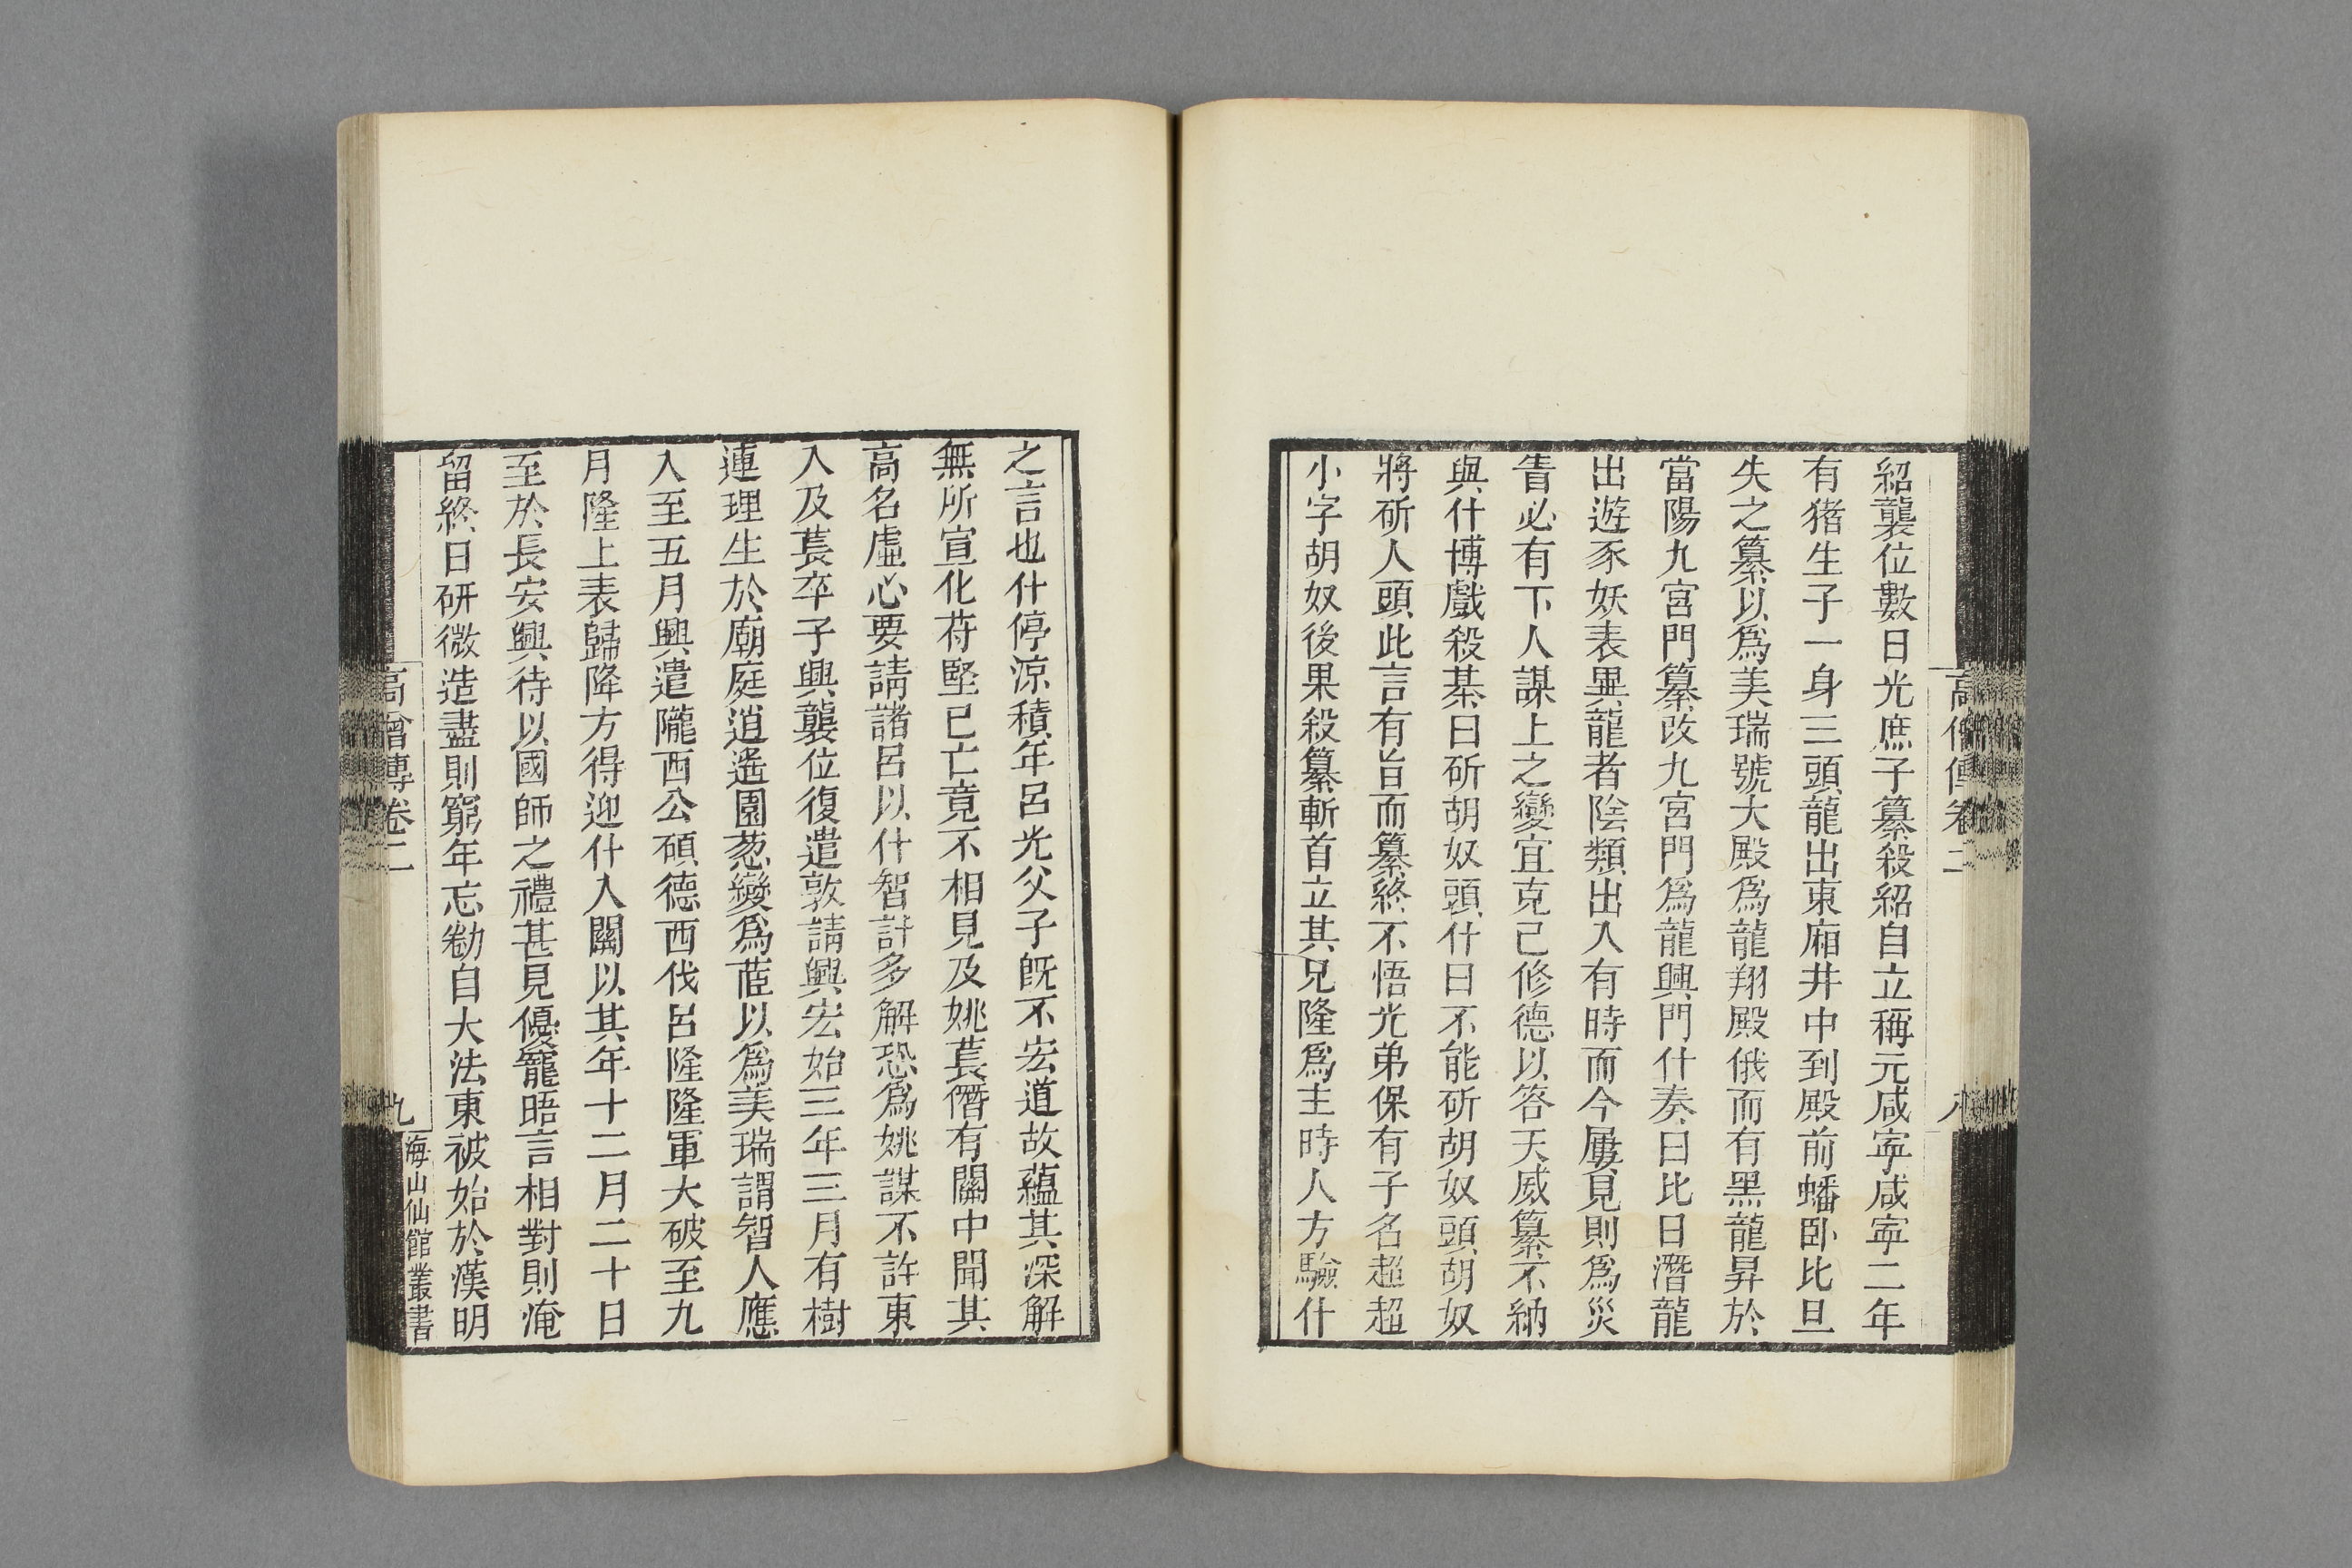 紹襲位數日光庶子纂殺紹自立稱元咸寜咸寜二年
有猪生子一身三頭龍出東廂井中到殿前蟠卧比旦
失之纂以爲美瑞號大殿爲龍翔殿俄而有黑龍昇於
當陽九宮門纂改九宮門爲龍興門什奏曰比日潛龍
出遊豕妖表異龍者陰類出入有時而今屢見則爲災
眚必有下人謀上之變宜克己修德以答天威纂不納
與什博戲殺棊曰斫胡奴頭什曰不能斫胡奴頭胡奴
將斫人頭此言有旨而纂終不悟光弟保有子名超超
小字胡奴後果殺纂斬首立其兄隆爲主時人方驗什
高僧傳卷二
八
之言也什停涼積年呂光父子既不宏道故蘊其深解
無所宣化苻堅已亡竟不相見及姚萇僭有關中聞其
高名虛心要請諸呂以什智計多解恐爲姚謀不許東
入及萇卒子興襲位復遣敦請興宏始三年三月有樹
連理生於廟庭逍遙園葱變爲茝以爲美瑞謂智人應
入至五月興遣隴西公碩德西伐呂隆隆軍大破至九
月隆上表歸降方得迎什入關以其年十二月二十日
至於長安興待以國師之禮甚見優寵晤言相對則淹
留終日研微造盡則窮年忘勌自大法東被始於漢明
高僧傳卷二
九
海山仙館叢書